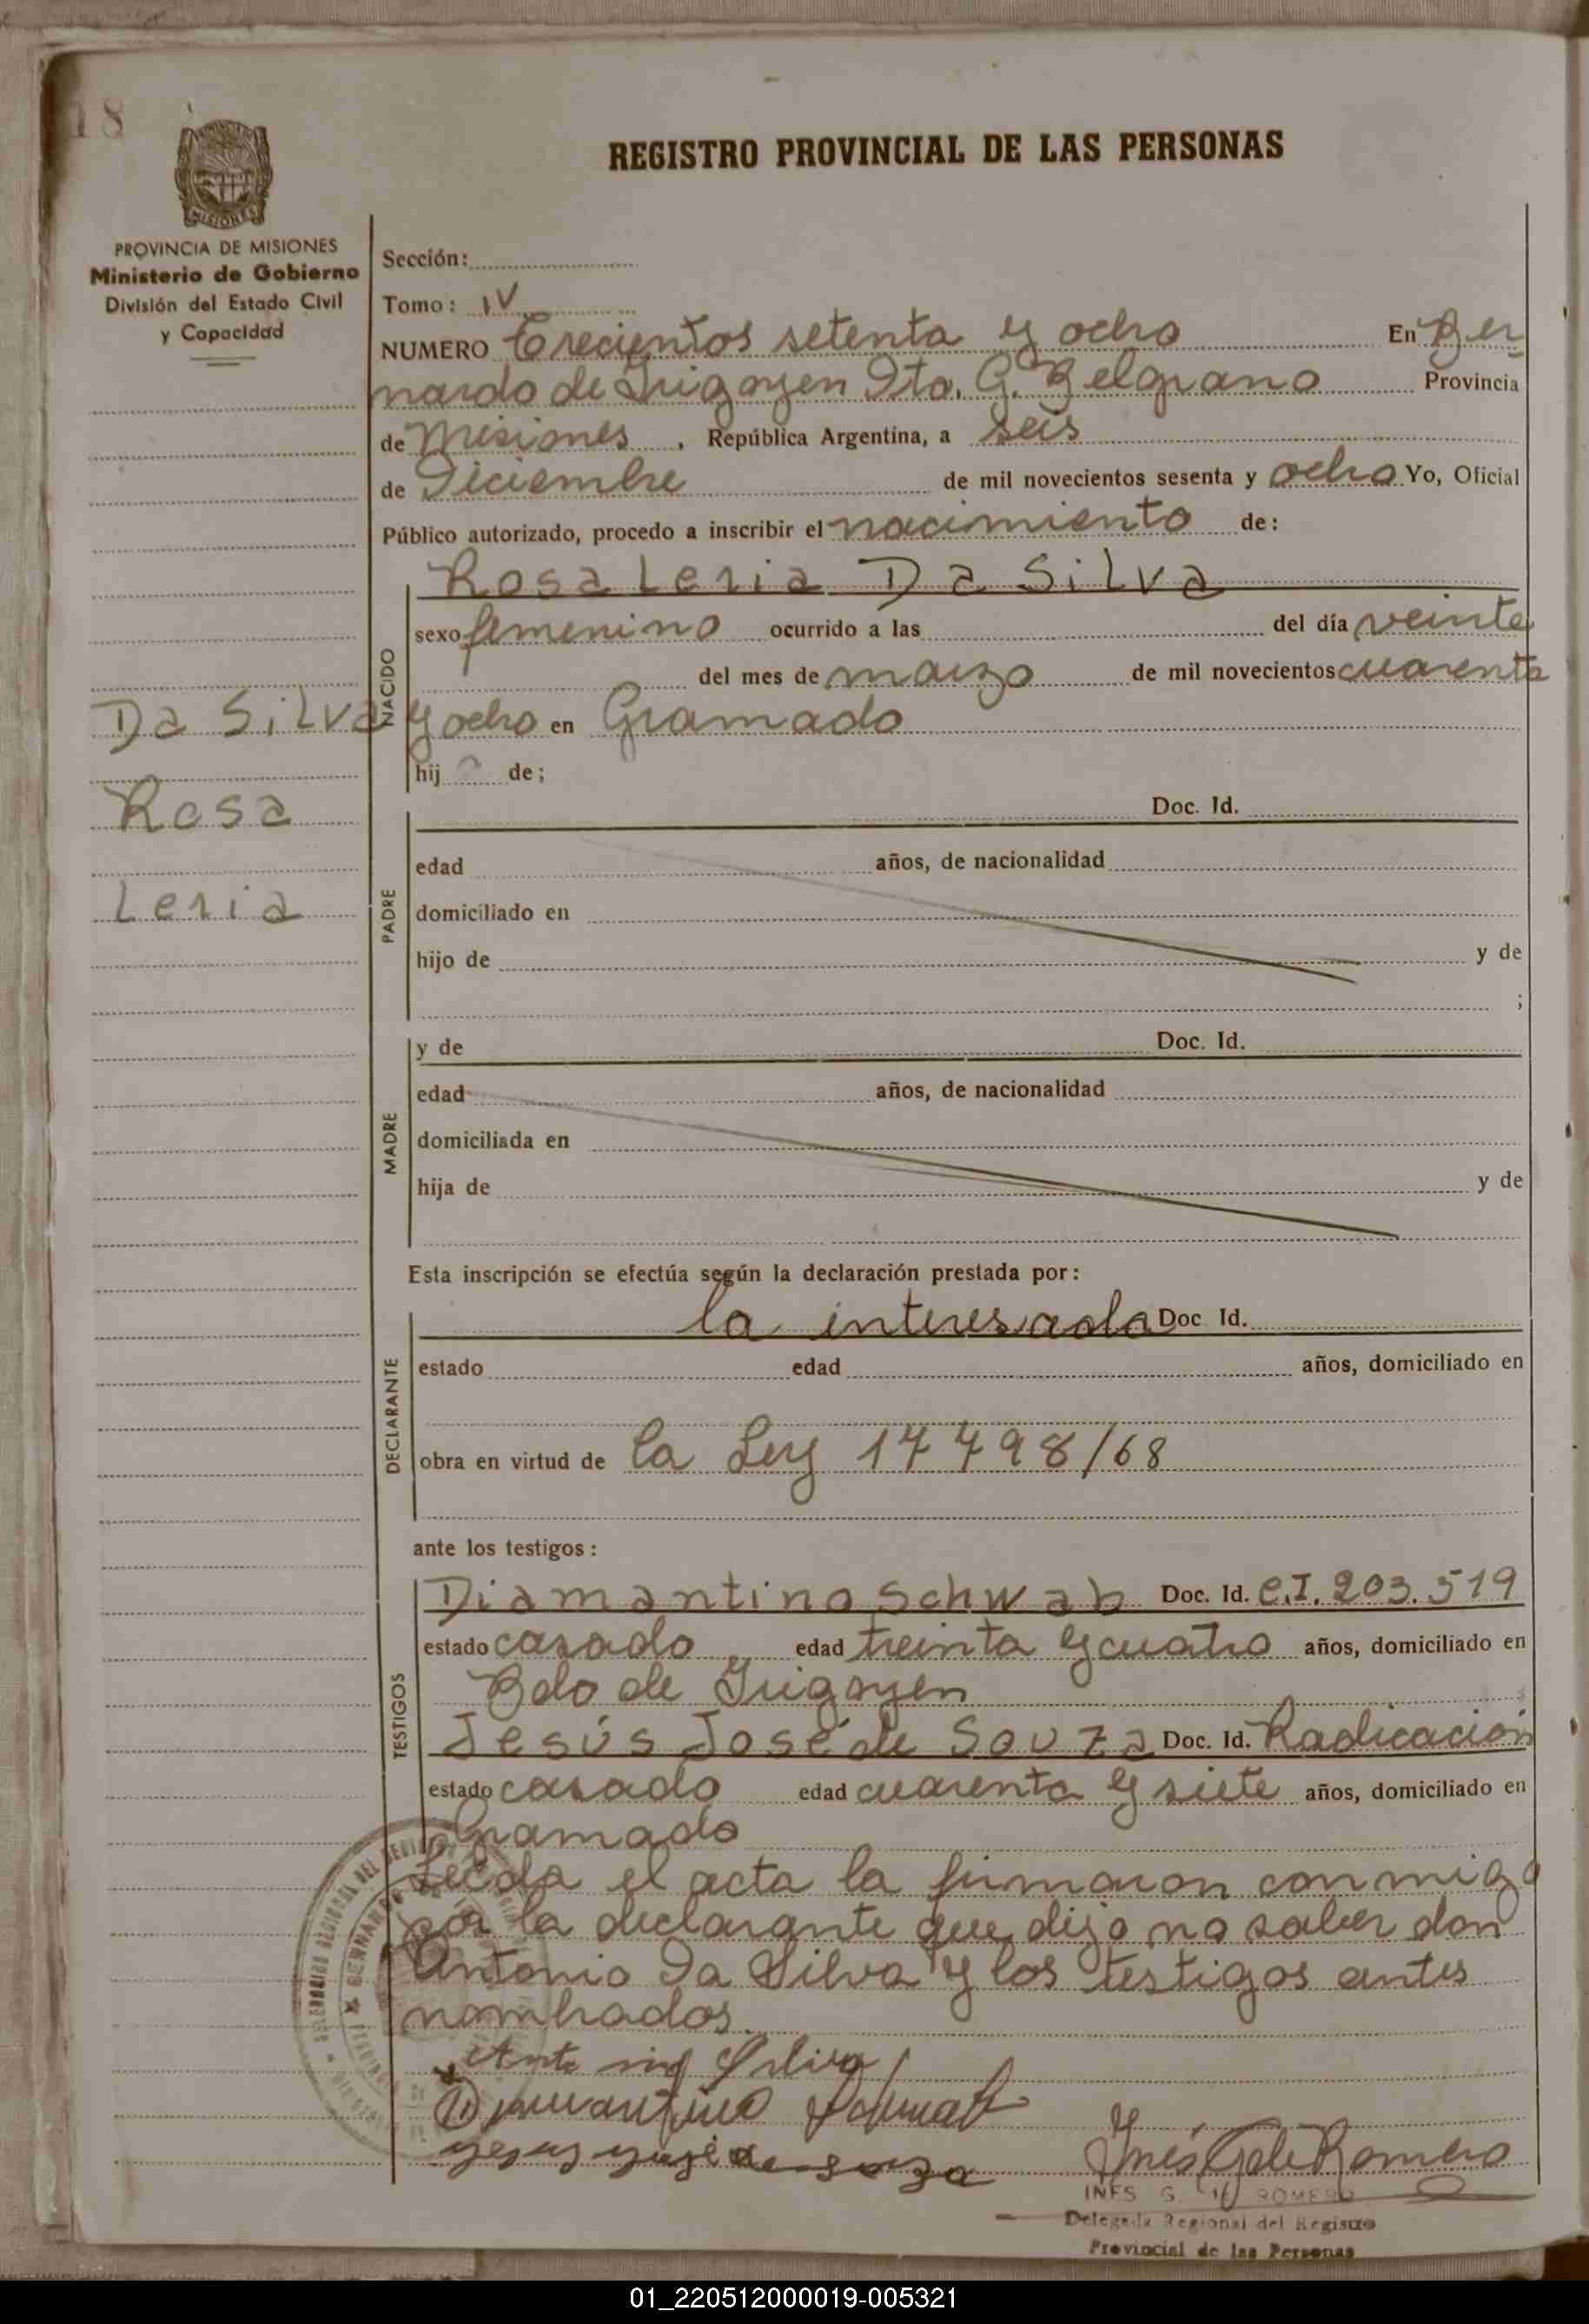 18
REGISTRO PROVINCIAL DE LAS PERSONAS
MISIONES
PROVINCIA DE MISIONES
Ministerio de Gobierno
División del Estado Civil
y Capacidad
Sección:
Tomo: IV
NUMERO Trecientos setenta y ocho En Ber
nardo de Irigoyen Dto. G. Belgrano Provincia
de Misiones, República Argentina, a seis
de Diciembre de mil novecientos sesenta y ocho Yo, Oficial
Público autorizado, procedo a inscribir el nacimiento de:
Rosa Leria Da Silva
sexo femenino ocurrido a las del día veinte
del mes de marzo de mil novecientos cuarenta
y ocho en Gramado
hij de;
NACIDO
Da Silva
Rosa
Leria
Doc. Id.
edad años, de nacionalidad
domiciliado en
hijo de y de
;
PADRE
y de Doc. Id.
edad años, de nacionalidad
domiciliada en
hija de y de
MADRE
Esta inscripción se efectúa según la declaración prestada por:
la interesada Doc Id.
estado edad años, domiciliado en
obra en virtud de la Ley 17498/68
DECLARANTE
ante los testigos:
Diamantino Schwab Doc. Id. C.I. 203.519
estado casado edad treinta y cuatro años, domiciliado en
Bdo de Irigoyen
Jesús José de Souza Doc. Id. Radicación
estado casado edad cuarenta y siete años, domiciliado en
Gramado
TESTIGOS
Leida el acta la firmaron conmigo
por la declarante que dijo no saber don
Antonio Da Silva y los testigos antes
nombrados.
Diamantino Schwab
Inés G. de Romero
INES G. DE ROMERO
Delegada Regional del Registro
Provincial de las Personas
01_220512000019-005321